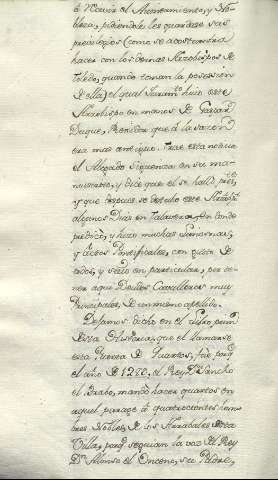 á recivir el Ayuntamiento, y No-
bleza, pidiendole les guardase sus
privilegios (como se acostumbra
hacer con los demas Arzobispos de
Toledo, quando toman la posesion
de ella) el qual Juram.to hizo este
Arzobispo en manos de Gaspar
Duque, Regidor que á la sazon
era mas antiguo. Trae esta noticia
el Abogado Siguenza en su ma-
nuscrito, y dice que el se halló pres.te
y que despues se detubo este Arzob.po
algunos Dias en Talavera, en donde
predicó, y hizo muchas Limosnas,
y Actos Pontificales, con gusto de
todos, y suyo en particular, por te-
ner aqui Deudos Cavalleros muy
Principales, de un mesmo apellido.
Dejamos dicho en el Libro prim.o
desta Historia, que el llamarse
esta Puerta de Quartos, fue porq.
el año de 1280, el Rey D.n Sancho
el Brabo, mandó hacer quartos en
aquel parage á quatrocientos hom-
bres Nobles, de los Arrabales desta
Villa, porq. seguian la voz del Rey
D.n Alonso el Onceno, su Padre,